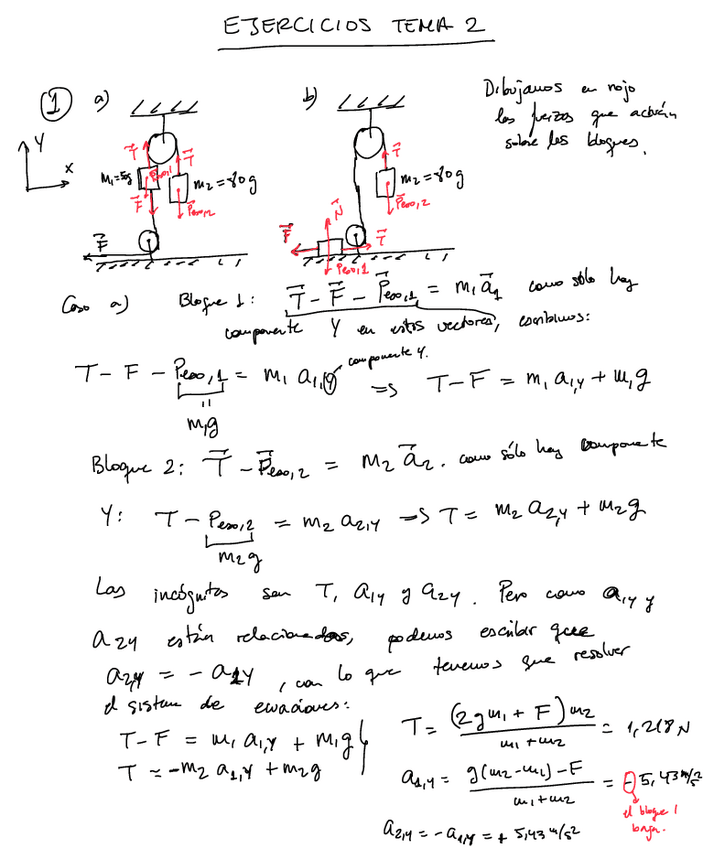 EJERCICIOS TEMA 2
① a)
b)
Dibujamos en rojo
las fuerzas que actúan
sobre los bloques.
Y
X
T⃗
T⃗
m₂=80g
F⃗
P⃗eso,2
F⃗
T⃗
m₂=80g
P⃗eso,2
N⃗
F⃗
T⃗
P⃗eso,1
Caso a) Bloque 1: T⃗ - F⃗ - P⃗eso,1 = m₁ a⃗₁ como sólo hay
componente Y en estos vectores, escribimos:
T - F - Peso,1 = m₁ a₁,y componente Y. => T - F = m₁ a₁,y + m₁g
m₁g
Bloque 2: T⃗ - P⃗eso,2 = m₂ a⃗₂. como sólo hay componente
Y: T - Peso,2 = m₂ a₂,y => T = m₂ a₂,y + m₂g
m₂g
Las incógnitas son T, a₁y y a₂y. Pero como a₁y y
a₂y están relacionadas, podemos escribir que
a₂y = - a₁y, con lo que tenemos que resolver
el sistema de ecuaciones:
T - F = m₁ a₁,y + m₁g
T = -m₂ a₁,y + m₂g
T = (2gm₁ + F)m₂ / m₁+m₂ = 1,218 N
a₁,y = g(m₂-m₁)-F / m₁+m₂ = -5,43 m/s²
el bloque 1
baja.
a₂,y = -a₁,y = + 5,43 m/s²